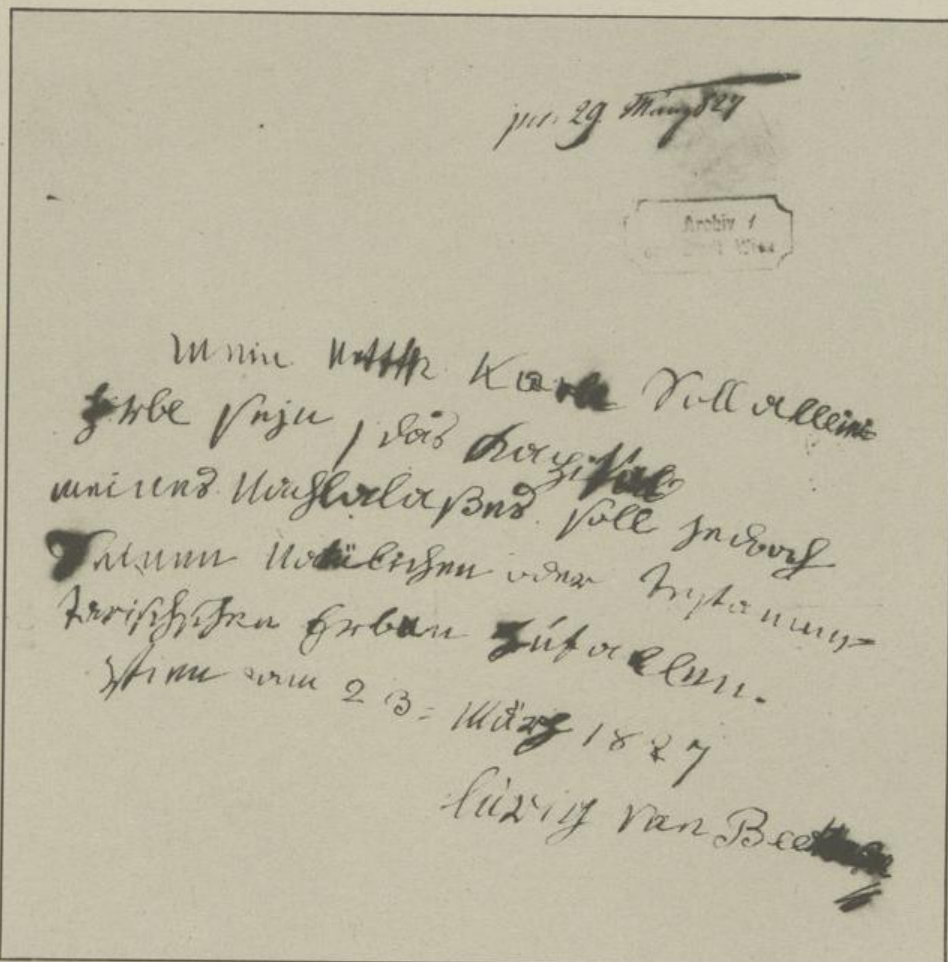 29. März 827
Archiv
Stadt Wien
Mein Neffe Karl Soll allein
Erbe seyn, das Kapital
meines Nachlalaßes soll jedoch
Seinen natülichen oder testamen-
tarischschen Erben zufallen.
Wien am 23= März 1827
luwig van Beethoven